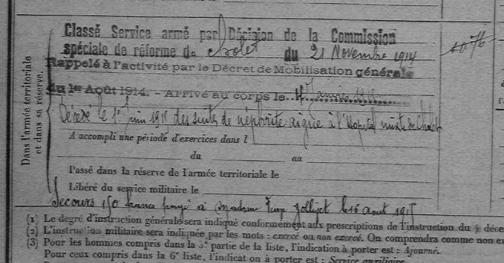 Classé Service armé par Décision de la Commission
spéciale de réforme de Cholet du 21 Novembre 1914
Rappelé à l'activité par le Décret de Mobilisation générale
du 1er Août 1914. - Arrivé au corps le
Décédé le 1er Juin 1915 des suites de néphrite aigüe à l'Hôpital mixte de
A accompli une période d'exercices dans l
du au
Passé dans la réserve de l'armée territoriale le
Libéré du service militaire le
Secours 150 francs payé à madame le 16 aout 1915
Dans l'armée territoriale
et dans sa réserve.
(1) Le degré d'instruction générale sera indiqué conformément aux prescriptions de l'instruction du 4 déce
(2) L'instruction militaire sera indiquée par les mots : exercé ou non exercé. On comprendra comme non e
(3) Pour les hommes compris dans la 5e partie de la liste, l'indication à porter est : Ajourné.
Pour ceux compris dans la 6e liste, l'indication à porter est : Service auxiliaire.